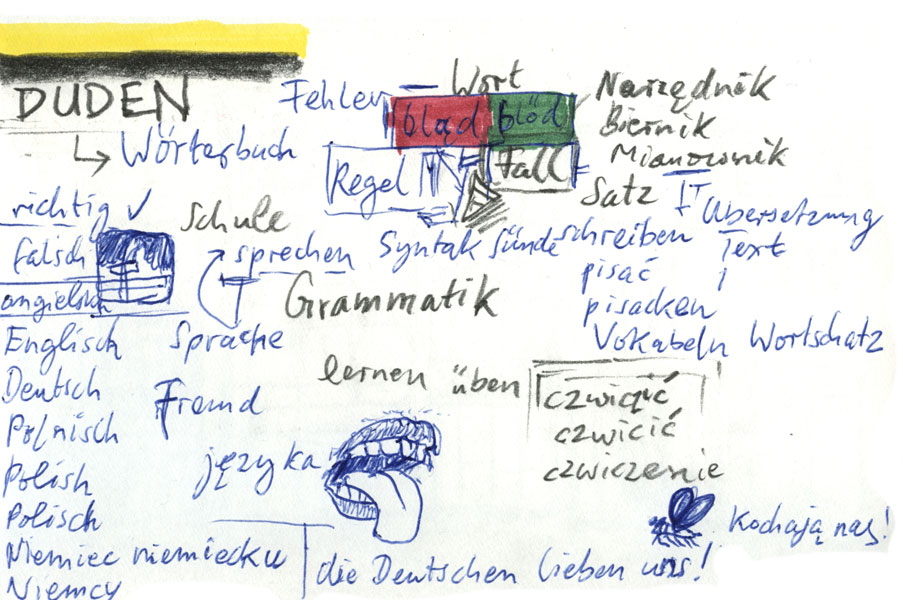 DUDEN
Wörterbuch
Fehler — Wort
bląd blöd
Regel
Fall
Narzędnik
Biernik
Mianownik
Satz
Übersetzung
Text
richtig ✓
falsch
angielsku
Englisch
Deutsch
Polnisch
Polish
Polisch
Niemiec niemiecku
Niemcy
Schule
sprechen Syntak Sünde schreiben
pisać
pisacken
Vokabeln Wortschatz
Grammatik
Sprache
lernen üben
Fremd
języka
czwiczić
czwicić
czwiczenie
Kochają nas!
die Deutschen lieben uns!